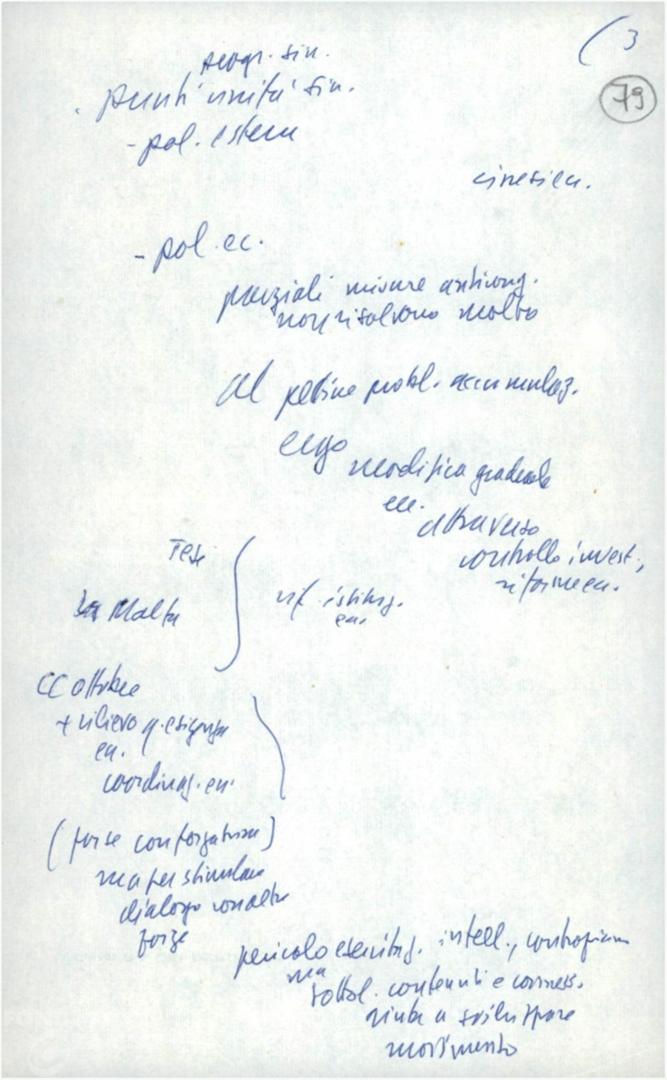 ( 3
79
progr. sin.
. punti unità sin.
- pol. estera
cinesicu.
- pol. ec.
parziali misure anticong.
non risolvono molto
al pettine probl. accumulaz.
ergo
modifica graduale
ec.
attraverso
controllo invest.,
riforme ec.
Tesi
La Malfa
rif. istituz.
ec.
CC ottobre
+ rilievo q. esigenza
ec.
coordinaz. ec.
(forse con forzatura)
ma per stimolare
dialogo con altre
forze
pericolo esercitaz. intell., contropiani
ma
sottol. contenuti e conness.
aiuta a sviluppare
movimento